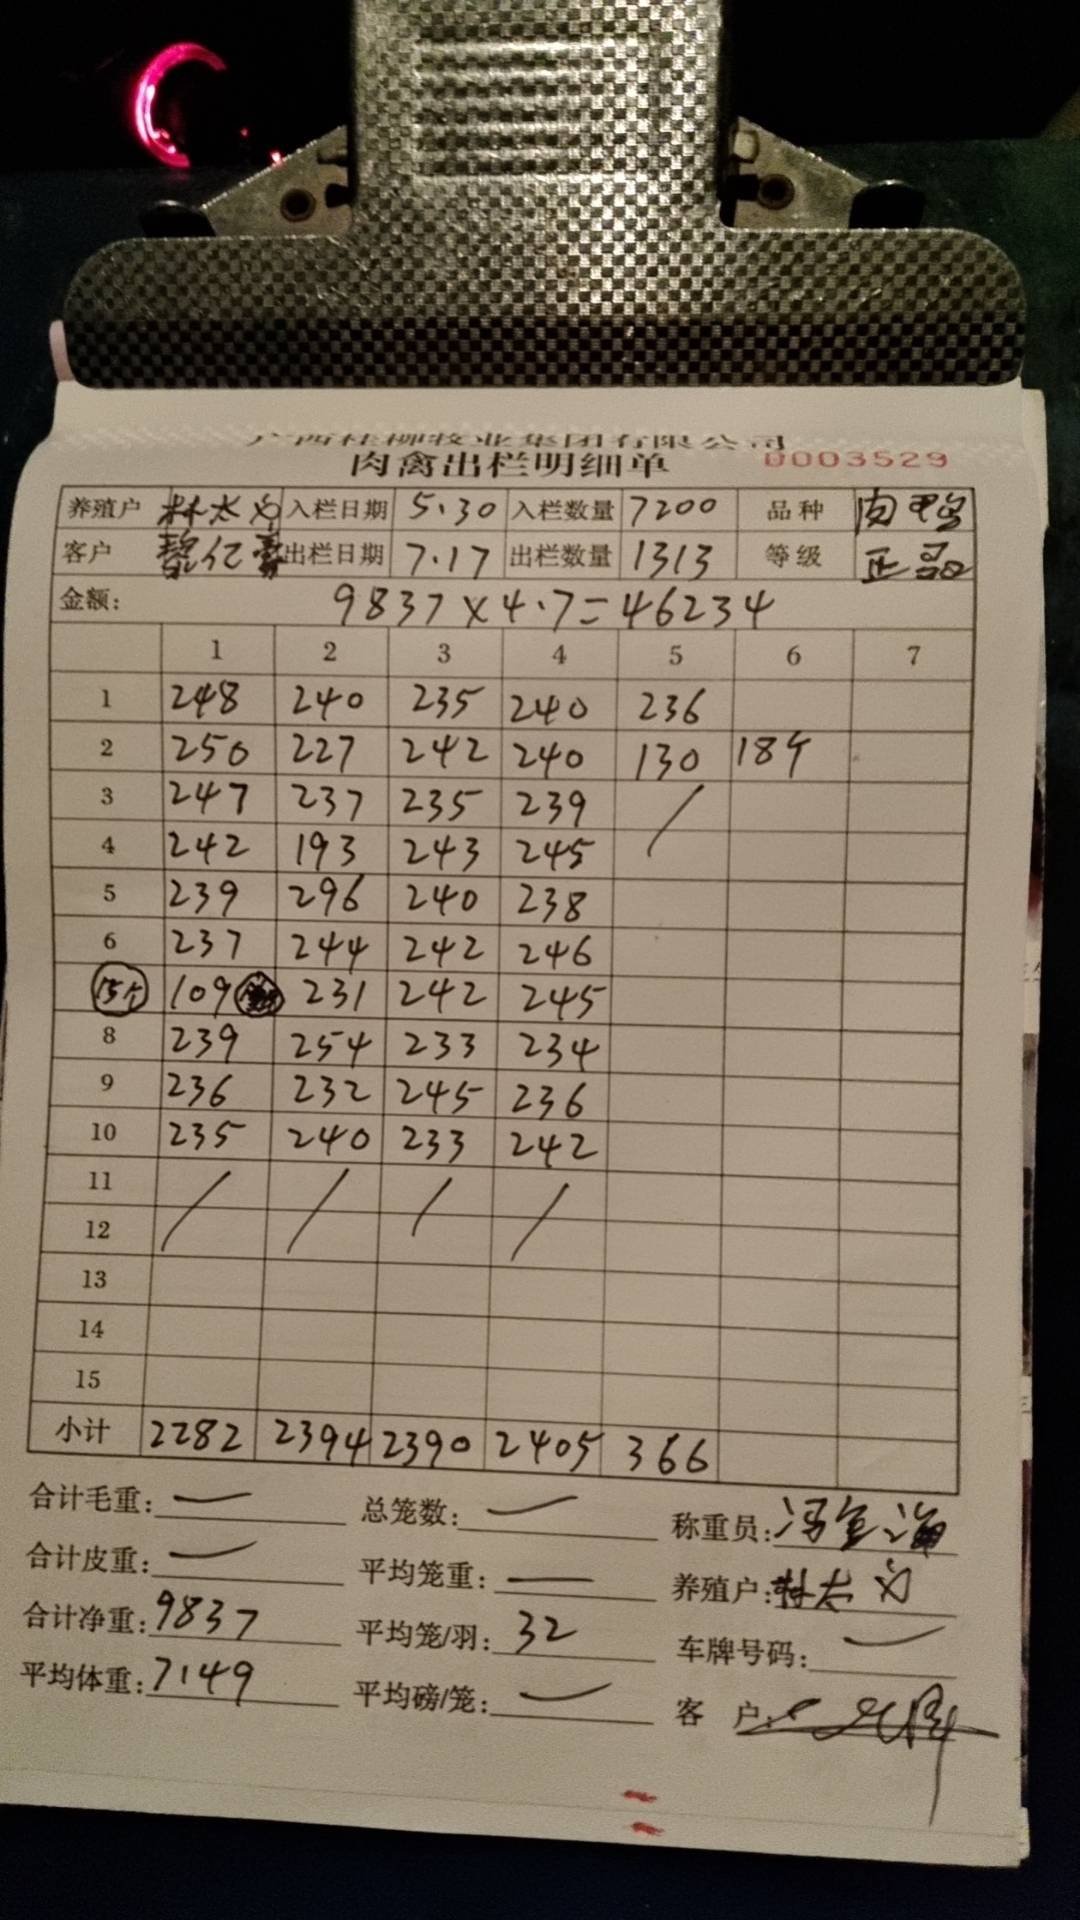 广西桂柳牧业集团有限公司
肉禽出栏明细单 0003529
养殖户 林太 入栏日期 5.30 入栏数量 7200 品种 肉鸭
客户 黎亿豪 出栏日期 7.17 出栏数量 1313 等级 正品
金额: 9837×4.7=46234
1 2 3 4 5 6 7
1 248 240 235 240 236
2 250 227 242 240 130 18个
3 247 237 235 239 /
4 242 193 243 245
5 239 296 240 238
6 237 244 242 246
15个 109 231 242 245
8 239 254 233 234
9 236 232 245 236
10 235 240 233 242
11 / / / /
12
13
14
15
小计 2282 2394 2390 2405 366
合计毛重: — 总笼数: — 称重员:
合计皮重: — 平均笼重: — 养殖户: 林太
合计净重: 9837 平均笼/羽: 32 车牌号码: —
平均体重: 7149 平均磅/笼: — 客户: